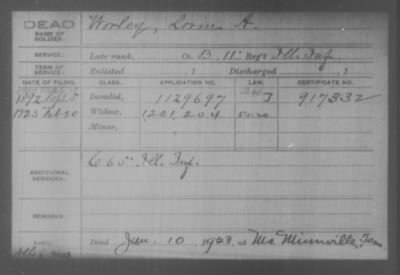 DEAD
NAME OF SOLDIER: Worley, Lorin A.
SERVICE: Late rank, Co. B, 11" Reg't Ill. Inf.
TERM OF SERVICE: Enlisted , 1 Discharged , 1
DATE OF FILING. CLASS. APPLICATION NO. LAW. CERTIFICATE NO.
1892 Sept. 5 Invalid, 1129697 917332
1923 Feb 20 Widow, 1201,204
Minor,
ADDITIONAL SERVICES: C 65" Ill. Inf.
REMARKS:
Died Jan. 10, 19 at Mc Minnville, Tenn